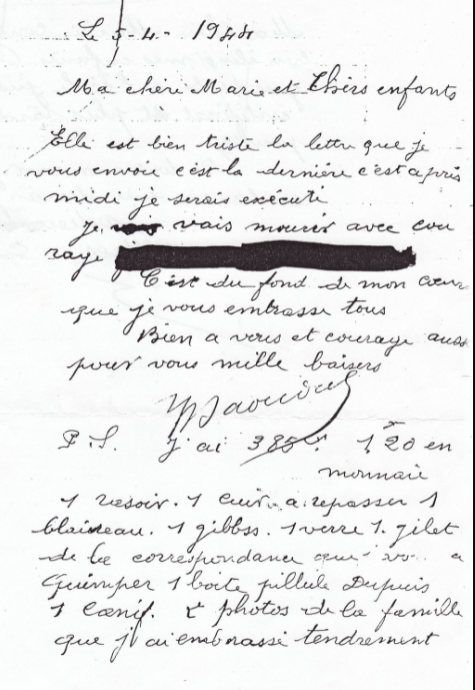 Le 5-4-1944
Ma chéri Marie et Chers enfants
Elle est bien triste la lettre que je
vous envoie c'est la dernière c'est apris
midi je serais exécuté
Je vais mourir avec cou
rage
C'est du fond de mon cœur
que je vous embrasse tous
Bien a vous et courage auss
pour vous mille baisers
P.S. J'ai 385 1,20 en
monnaie
1 rasoir. 1 cuir a repasser 1
blaireau. 1 gibbss. 1 verre 1. gilet
de la correspondance qui a
Quimper 1 boite pillule Dupuis
1 canif. photos de la famille
que j'ai embrassé tendrement